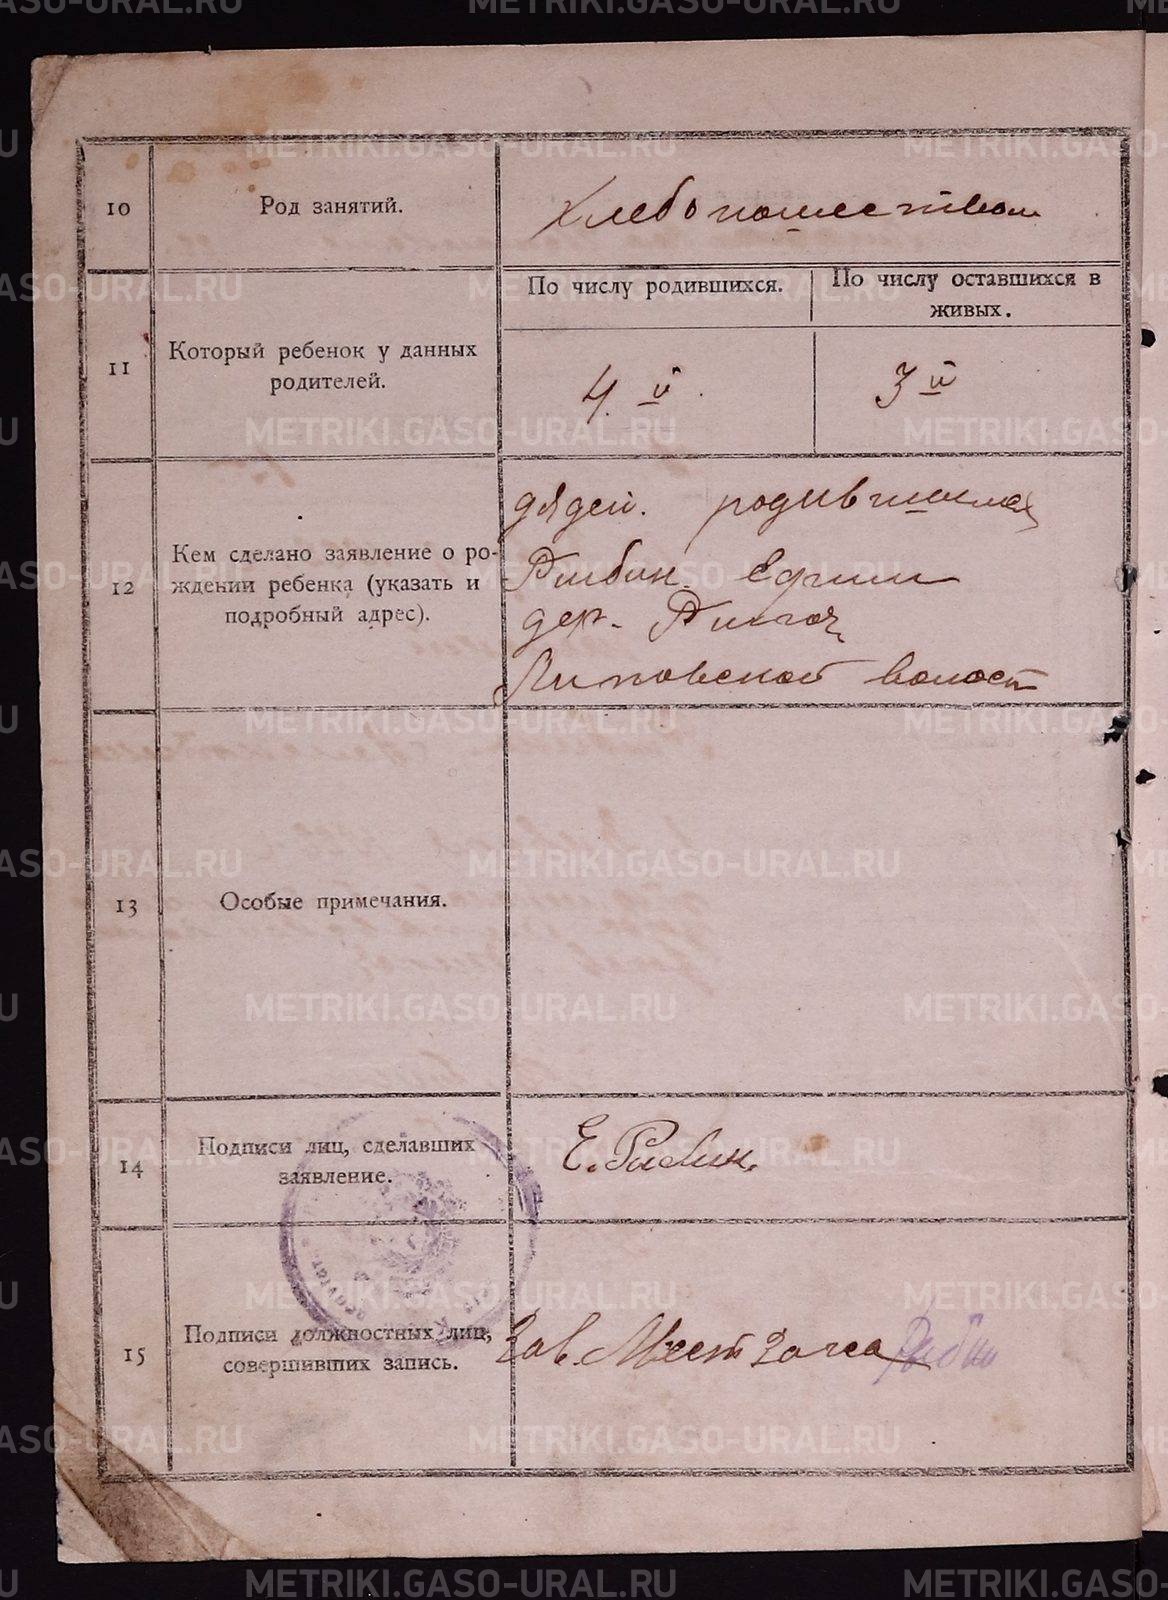 METRIKI.GASO-URAL.RU
10
Род занятий.
Хлебопашеством
11
Который ребенок у данных
родителей.
По числу родившихся.
По числу оставшихся в
живых.
4й
3й
12
Кем сделано заявление о ро-
ждении ребенка (указать и
подробный адрес).
дядей. родившимся
Рыбин Ефим
дер.
Липовской волост
13
Особые примечания.
14
Подписи лиц, сделавших
заявление.
Е. Рыбин.
15
Подписи должностных лиц,
совершивших запись.
Зав. Мест Загса Рыбин